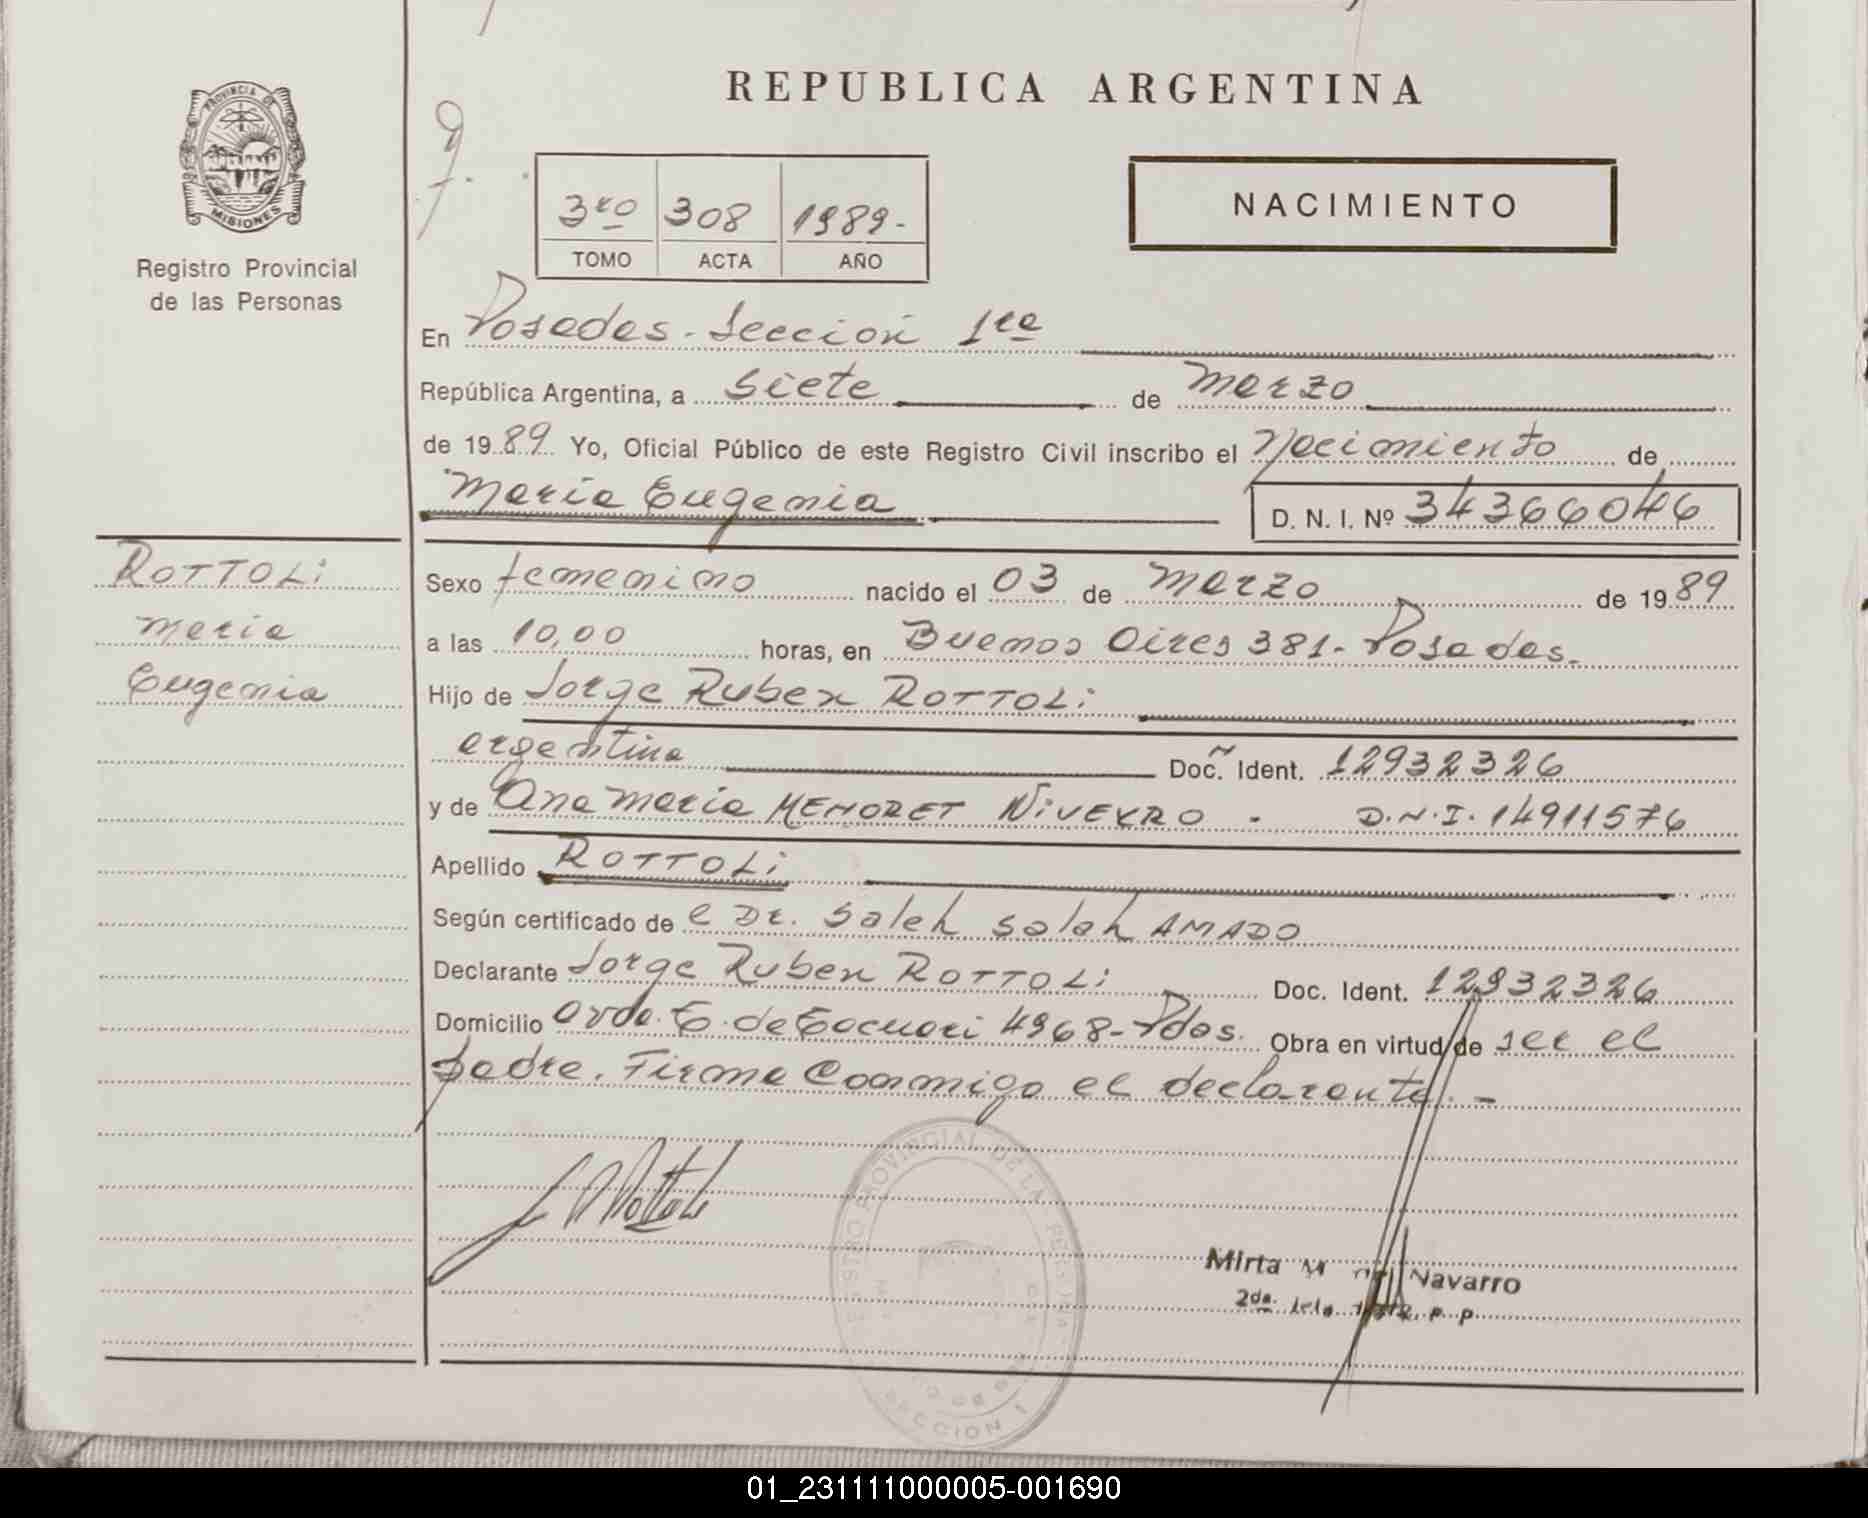 REPUBLICA ARGENTINA
PROVINCIA DE
MISIONES
Registro Provincial
de las Personas
3ro 308 1989.-
TOMO ACTA AÑO
NACIMIENTO
En Posadas - Sección 1ra
República Argentina, a siete de marzo
de 1989. Yo, Oficial Público de este Registro Civil inscribo el Nacimiento de
María Eugenia D. N. I. Nº 34366046
ROTTOLi
María
Eugenia
Sexo femenino nacido el 03 de marzo de 1989
a las 10,00 horas, en Buenos Aires 381 - Posadas.
Hijo de Jorge Ruben ROTTOLi
argentina Doc. Ident. 12932326
y de Ana María MEMORET NiVEYRO - D.N.I. 14911576
Apellido ROTTOLi
Según certificado de e Dr. Saleh Salah AMADO
Declarante Jorge Ruben ROTTOLi Doc. Ident. 12932326
Domicilio Avda. T. de Tacuari 4968 - Pdas. Obra en virtud de ser el
padre. Firma Conmigo el declarante. -
J Rottoli
REGISTRO PROVINCIAL DE LA PERSONA
SECCION 1
Mirta Navarro
2da.
01_231111000005-001690